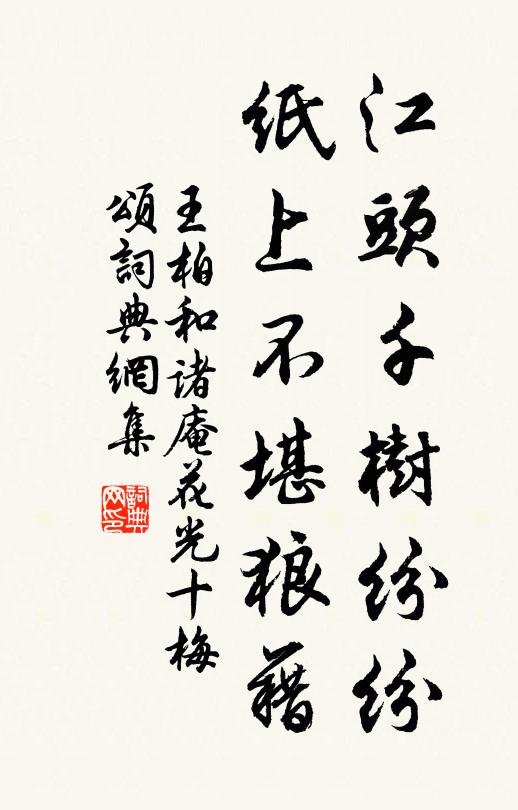 江頭千樹紛紛
紙上不堪狼藉
王柏和諸庵花光十梅
頌詞典網集
詞典网印